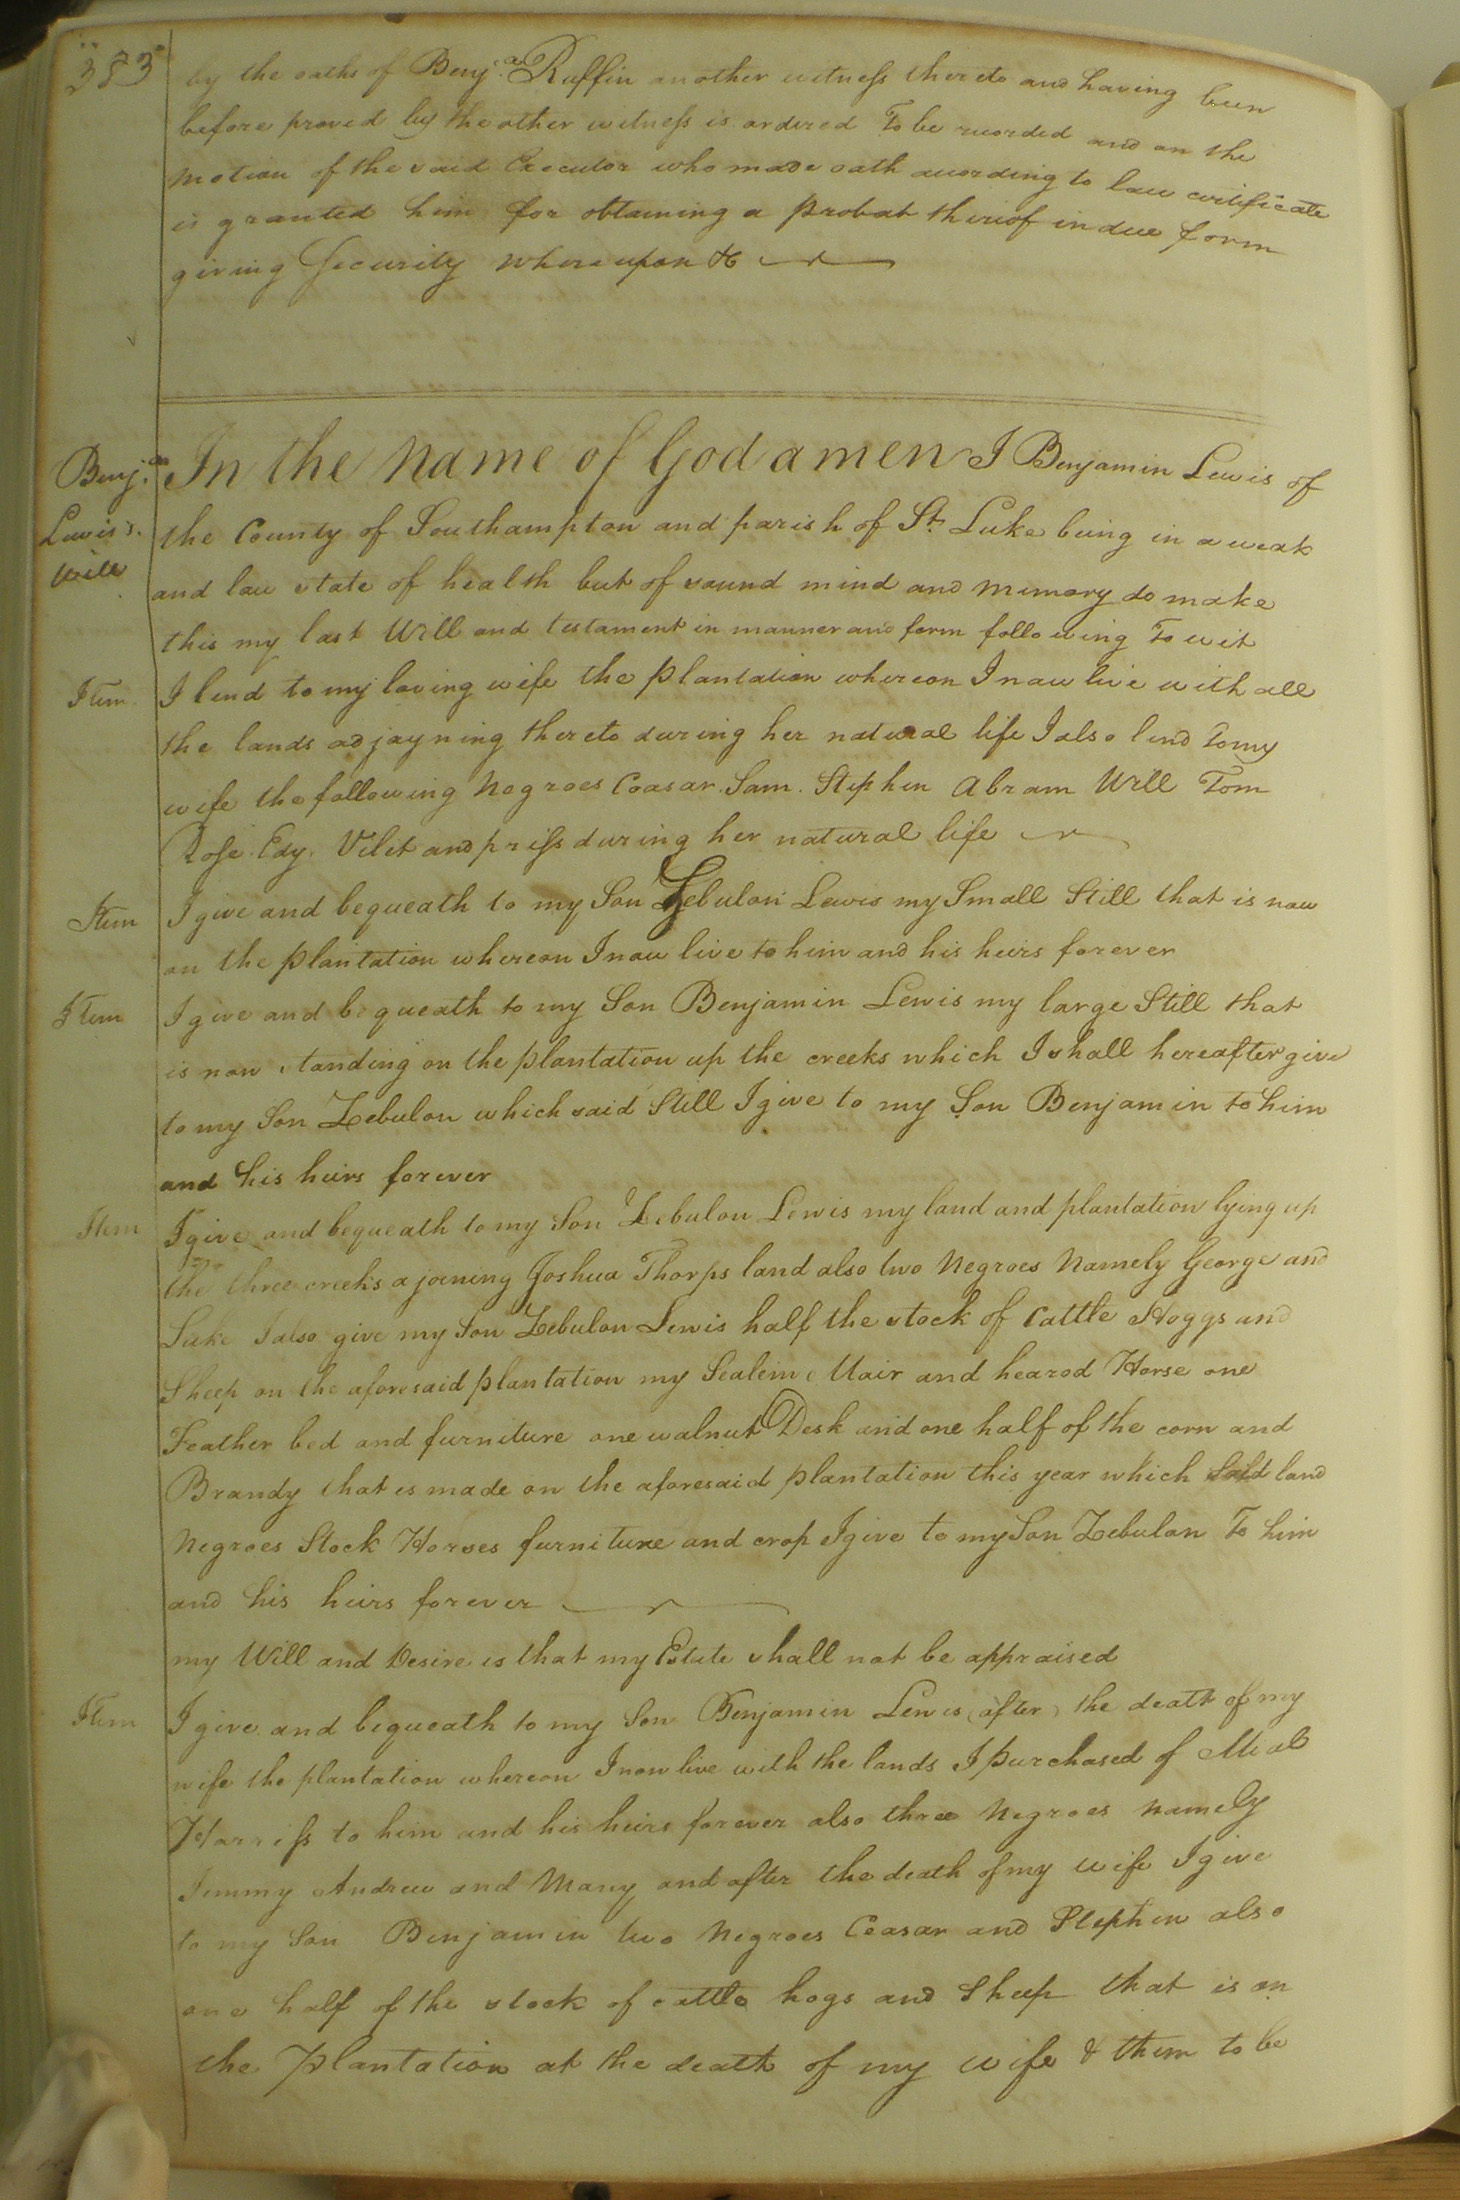 383
by the oaths of Benj.a Ruffin another witness thereto and having been
before proved by the other witness is ordered To be recorded and on the
motion of the said Executor who made oath according to law certificate
is granted him for obtaining a probat thereof in due form
giving Security whereupon &c
Benj.a Lewis's Will
In the name of God amen I Benjamin Lewis of
the County of Southampton and parish of St. Luke being in a weak
and law state of health but of sound mind and memory do make
this my last Will and testament in manner and form following To wit
Item I lend to my loving wife the plantation whereon I now live with all
the lands adjayning thereto during her natural life I also lend to my
wife the following Negroes Ceasar. Sam. Stephen Abram Will Tom
Rose. Edy. Vilet and priss during her natural life
Item I give and bequeath to my Son Zebulon Lewis my Small Still that is now
on the plantation whereon I now live to him and his heirs forever
Item I give and bequeath to my Son Benjamin Lewis my large Still that
is now standing on the plantation up the creeks which I shall hereafter give
to my Son Zebulon which said Still I give to my Son Benjamin to him
and his heirs forever
Item I give and bequeath to my Son Zebulon Lewis my land and plantation lying up
the three creeks ajoining Joshua Thorps land also two Negroes Namely George and
I also give my Son Zebulon Lewis half the stock of Cattle Hoggs and
Sheep on the aforesaid plantation my Mair and Horse one
Feather bed and furniture one walnut Desk and one half of the corn and
Brandy that is made on the aforesaid plantation this year which Said land
Negroes Stock Horses furniture and crop I give to my Son Zebulon To him
and his heirs forever
my Will and Desire is that my Estate shall not be appraised
Item I give and bequeath to my Son Benjamin Lewis (after) the death of my
wife the plantation whereon I now live with the lands I purchased of
Harriss to him and his heirs forever also three Negroes namely
Jimmy Andrew and Mary and after the death of my wife I give
to my Son Benjamin two Negroes Ceasar and Stephen also
one half of the stock of cattle hogs and Sheep that is on
the Plantation at the death of my wife & them to be